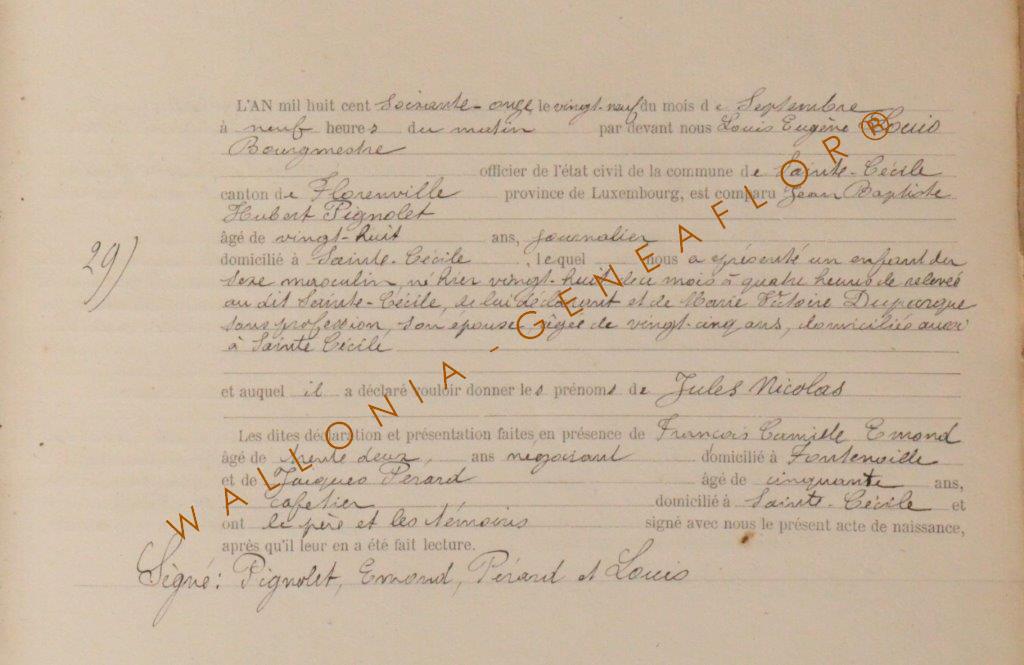 L'AN mil huit cent soixante-onze le vingt-neuf du mois de Septembre
à neuf heures du matin par devant nous Louis Eugène Louis
Bourgmestre
officier de l'état civil de la commune de Sainte-Cécile
canton de Florenville province de Luxembourg, est comparu Jean Baptiste
Hubert Pignolet
âgé de vingt-huit ans, journalier
29) domicilié à Sainte-Cécile, lequel nous a présenté un enfant du
sexe masculin, né hier vingt-huit de ce mois à quatre heures de relevée
au dit Sainte-Cécile, de lui déclarant et de Marie Victoire Duparque
sans profession, son épouse, âgée de vingt-cinq ans, domiciliée aussi
à Sainte Cécile
et auquel il a déclaré vouloir donner les prénoms de Jules Nicolas
Les dites déclaration et présentation faites en présence de François Camille Emond
âgé de trente deux, ans négociant domicilié à Fontenoille
et de Jacques Pérard âgé de cinquante ans,
cafetier domicilié à Sainte-Cécile et
ont le père et les témoins signé avec nous le présent acte de naissance,
après qu'il leur en a été fait lecture.
Signé: Pignolet, Emond, Pérard et Louis
WALLONIA-GENEAFLOR®